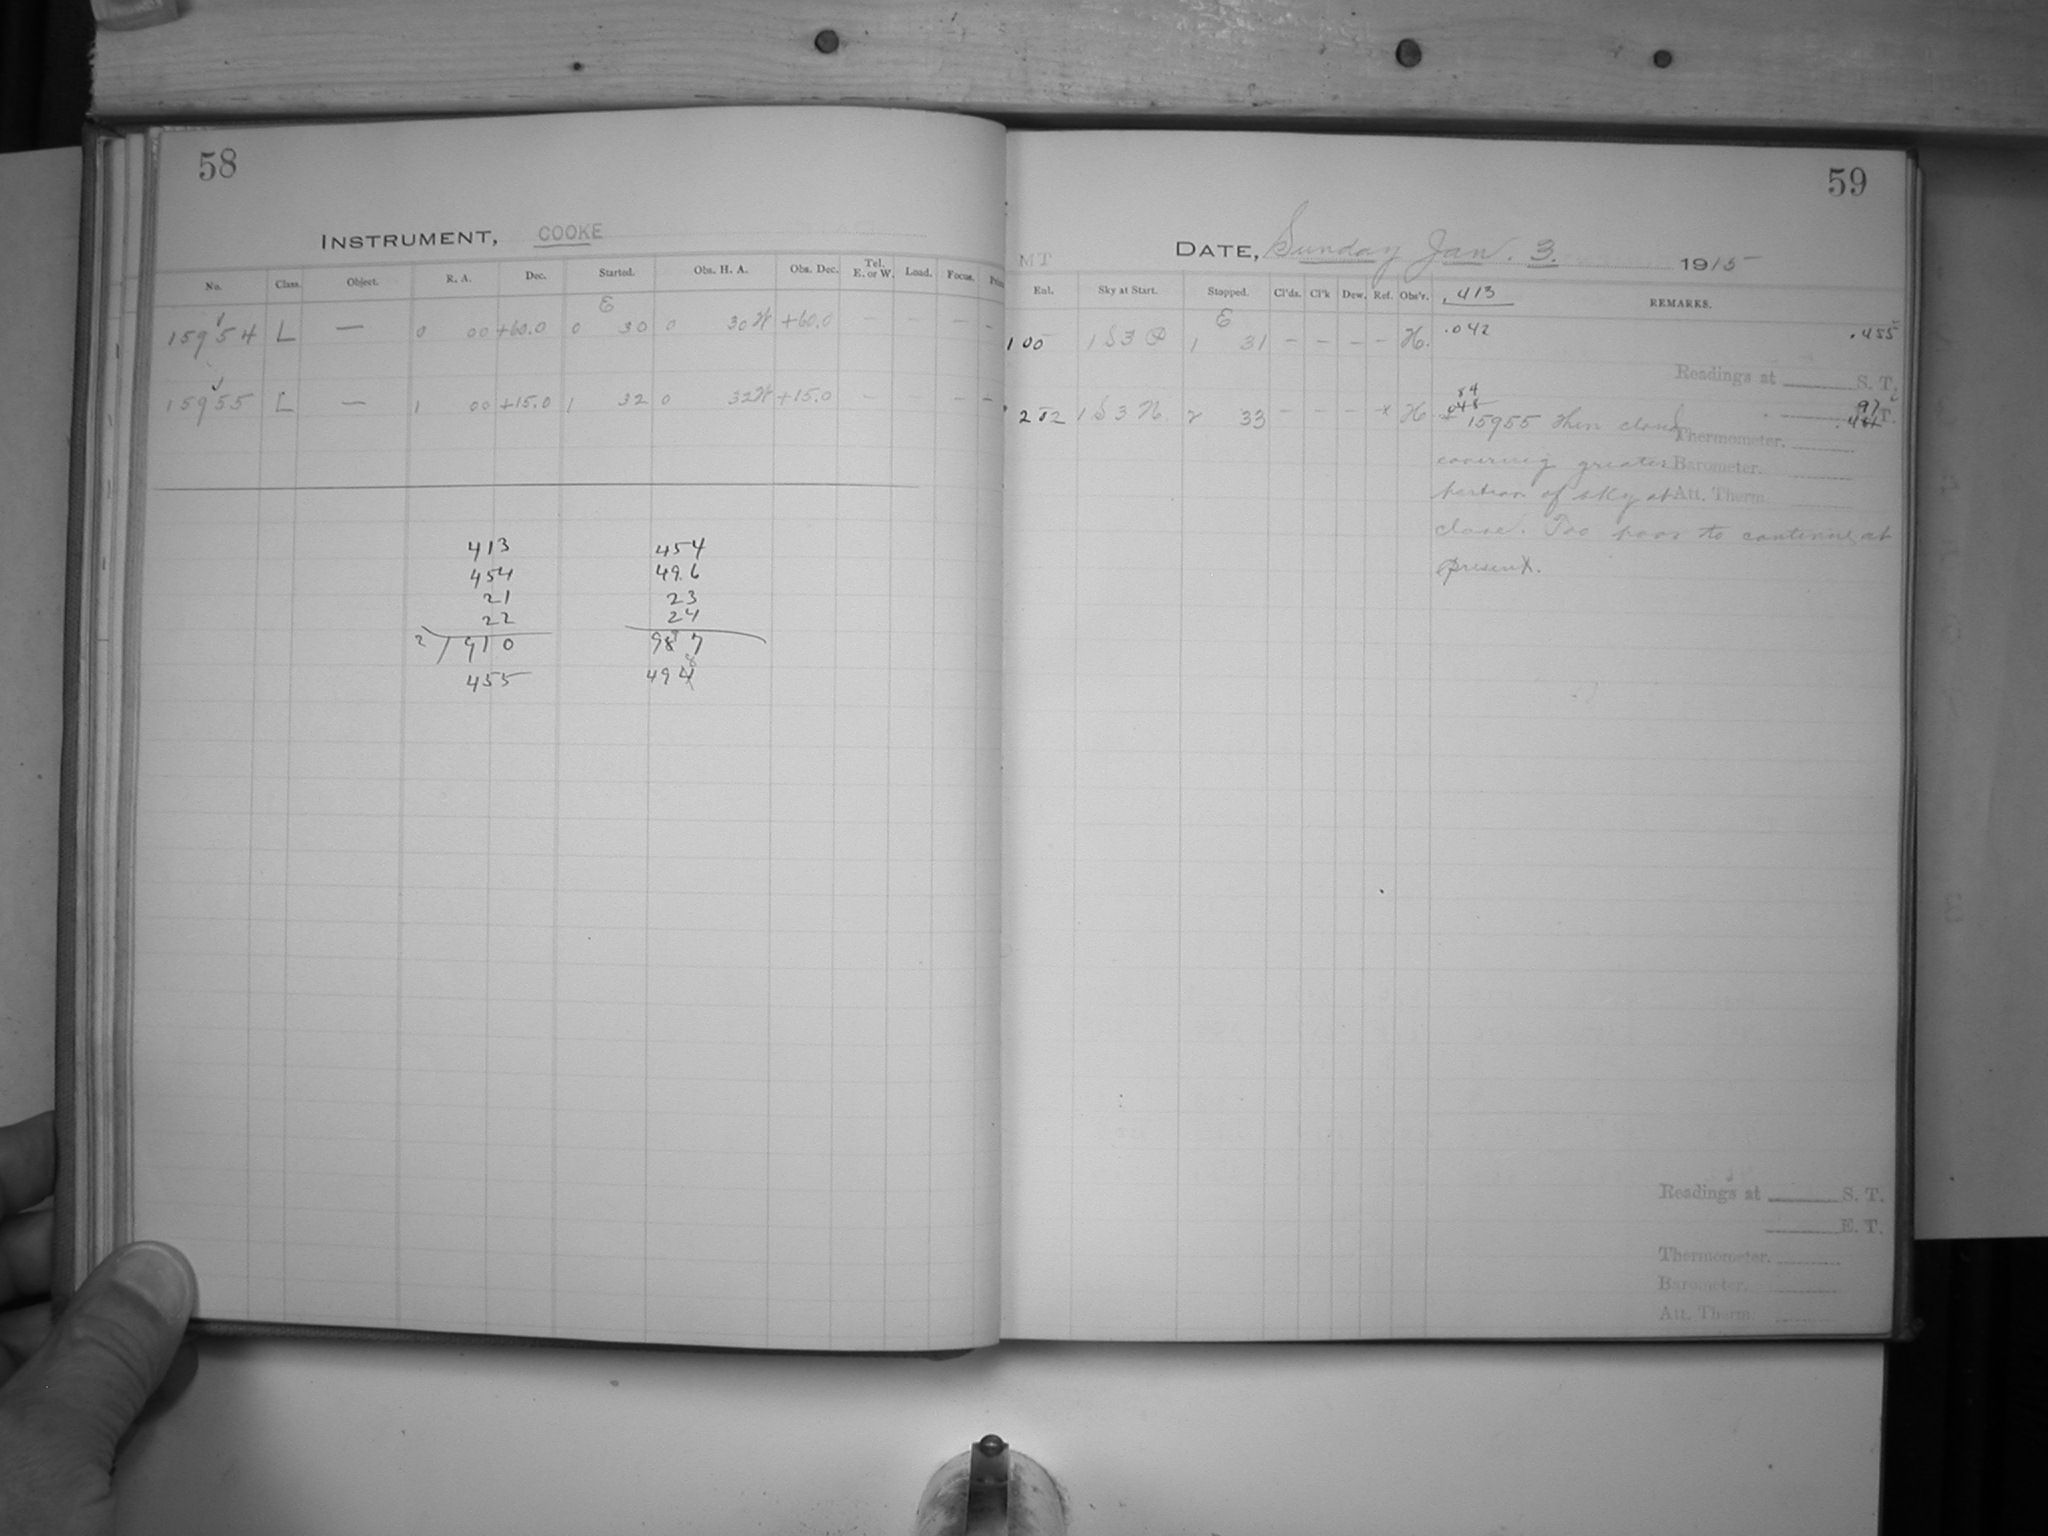 58
INSTRUMENT, COOKE
No. Class. Object. R. A. Dec. Started. Obs. H. A. Obs. Dec. Tel. E. or W. Load. Focus.
E
15954 L — 0 00 +60.0 0 30 0 30 W +60.0 – – – –
15955 L — 1 00 +15.0 1 32 0 32 W +15.0 – – –
413 454
454 49.6
21 23
22 24
2) 910 987
455 494
8
59
MT
DATE, Sunday Jan. 3. 1915
Exl. Sky at Start. Stopped. Cl'ds. Cl'k Dew. Ref. Obs'r. .413 REMARKS.
E
1 00 1 S 3 P 1 31 – – – – H. .042 .455
Readings at S. T.
84
97
2 02 1 S 3 N 2 33 – – – x H 15955 Thin clouds T.
Thermometer.
covering greater Barometer.
portion of sky at Att. Therm.
close. Too poor to continue at
present.
Readings at S. T.
E. T.
Thermometer.
Barometer.
Att. Therm.